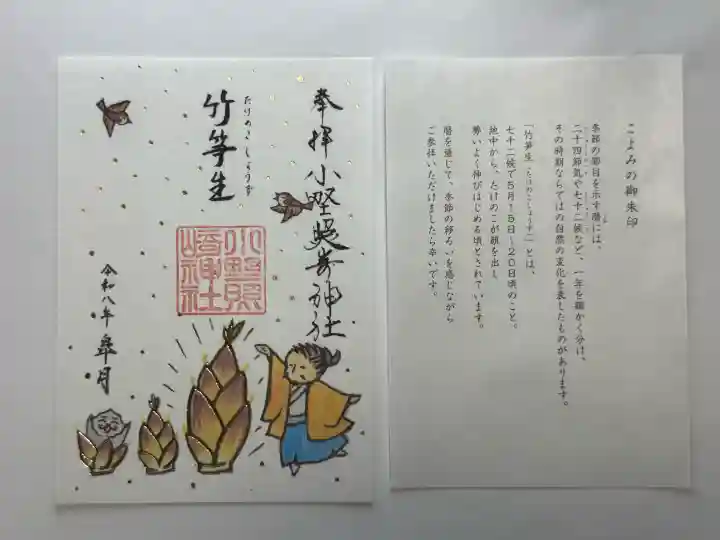 奉拝
小野照崎神社
たけのこしょうず
竹笋生
小野照
崎神社
令和八年 皐月
こよみの御朱印
季節の節目を示す暦には、
二十四節気や七十二候など、一年を細かく分け、
その時期ならではの自然の変化を表したものがあります。
「竹笋生（たけのこしょうず）」とは、
七十二候で5月15日〜20日頃のこと。
地中から、たけのこが顔を出し
勢いよく伸びはじめる頃とされています。
暦を通じて、季節の移ろいを感じながら
ご参拝いただけましたら幸いです。